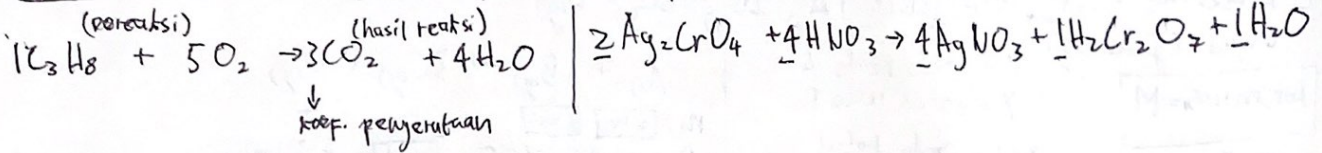 (pereaksi) (hasil reaksi)
1C₃H₈ + 5O₂ → 3CO₂ + 4H₂O
↓
koef. penyerataan
2Ag₂CrO₄ + 4HNO₃ → 4AgNO₃ + 1H₂Cr₂O₇ + 1H₂O